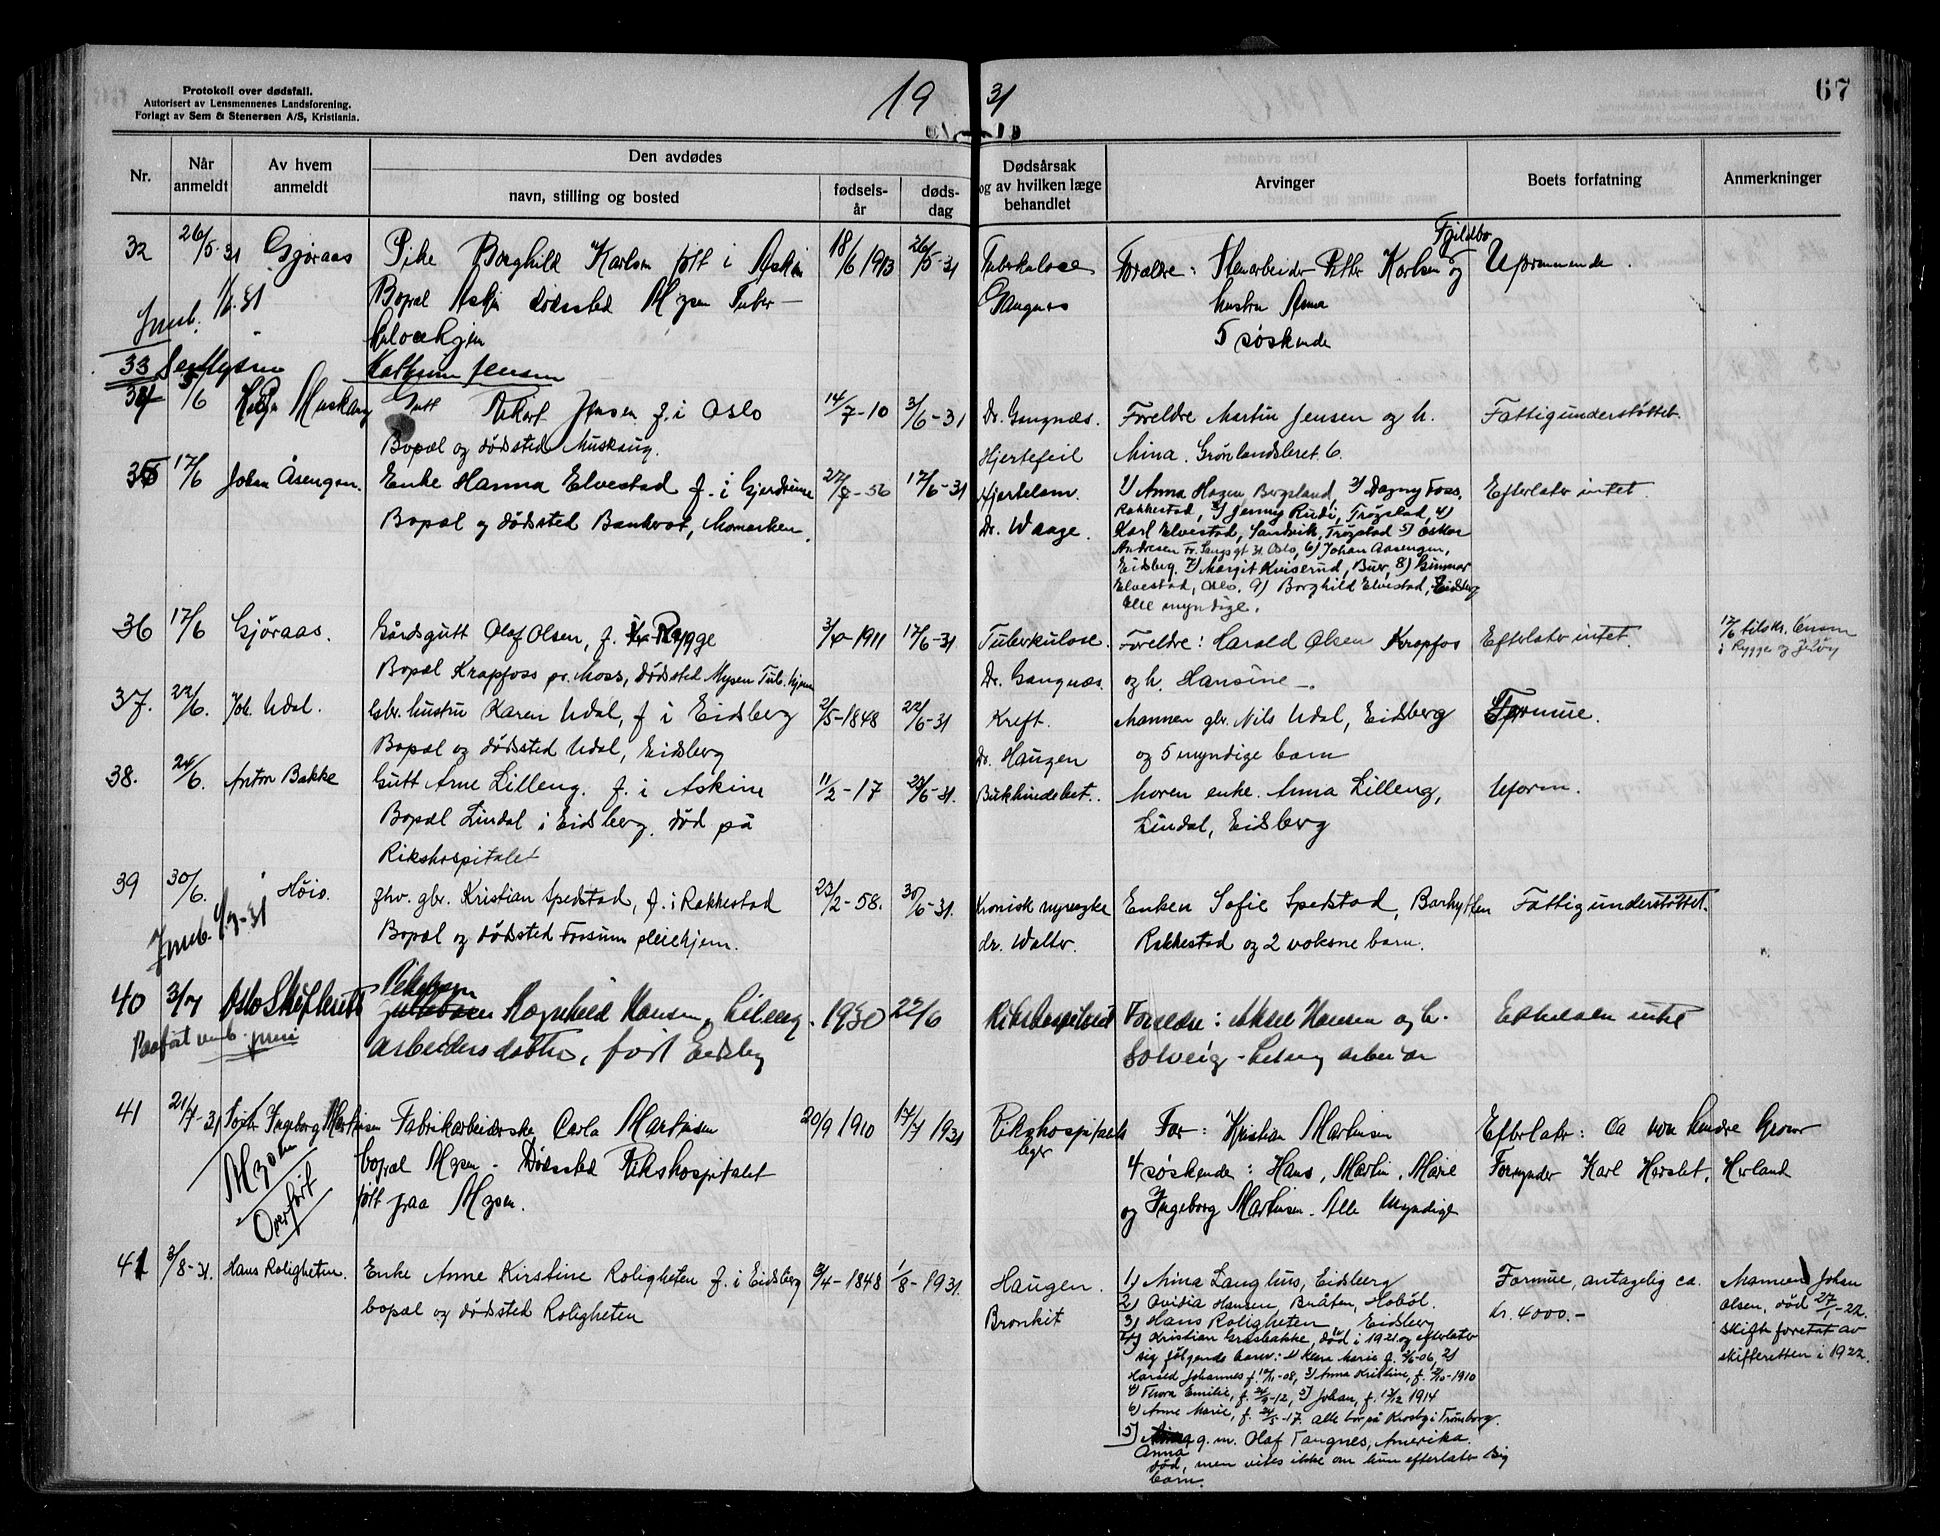 Protokoll over dødsfall.
Autorisert av Lensmennenes Landsforening.
Forlagt av Sem & Stenersen A/S, Kristiania.
19 31
67
Nr.
Når anmeldt
Av hvem anmeldt
Den avdødes
navn, stilling og bosted
fødsels-år
døds-dag
Dødsårsak og av hvilken læge behandlet
Arvinger
Boets forfatning
Anmerkninger
32 26/5-31 Gjøraas Pike Borghild Karlsen født i Askim 18/6 1913 26/5-31 Tuberkulose Forældre: Stenarbeider Petter Karlsen og Uformuende.
Fjeldbo
1/6.31 Bopæl Askim dødssted Mysen Tuber-
Gangnæs hustru Anna
kulosehjem 5 søskende
33 Jensen
34 5/6 Muskaug Gutt Jensen f. i Oslo 14/7-10 3/6-31 Dr. Gangnæs. Foreldre Martin Jensen og h. Fattigunderstøttet.
Bopæl og dødsted Muskaug. Hjertefeil Mina. Grønlandsleret 6.
35 17/6 Johan Åsengen. Enke Hanna Elvestad f. i Gjerdrum 17/6-31 Hjertelam. 1) Anna Hagen Bergsland, 2) Dagny Foss, Efterlater intet.
Rakkestad, 3) Jenny Rudi, Trøgstad, 4)
Bopæl og dødsted Bankerot, Momarken. Dr. Waage. Karl Elvestad, Sandvik, Trøgstad 5) Oskar
Andresen Oslo, 6) Johan Aasengen,
Eidsberg. 7) Margit Kviserud, Buer, 8) Gunnar
Elvestad, Oslo. 9) Borghild Elvestad, Eidsberg
Alle myndige.
36 17/6 Gjøraas. Gårdsgutt Olaf Olsen, f. i Rygge 3/4-1911 17/6-31 Tuberkulose. Foreldre: Harald Olsen Krapfos Efterlater intet. 17/6 tilskr. lensm
i Rygge og Jeløy
Bopæl Krapfoss pr. Moss, dødsted Mysen Tub. hjem Dr. Gangnæs. og h. Hansine —.
37. 22/6. Joh. Udal. Gbr. hustru Karen Udal, f. i Eidsberg 2/5-1848 22/6-31 Kreft. Mannen gbr. Nils Udal, Eidsberg Formue.
Bopæl og dødsted Udal, Eidsberg Dr. Haugen og 5 myndige barn
38. 24/6. Anton Bakke Gutt Arne Lilleng. f. i Askim 11/2-17 Bukhindebet.. Moren enke. Anna Lilleng, Uform.
Bopæl Lindal i Eidsberg. død på Lindal, Eidsberg
Rikshospitalet
39 30/6. Høie. Fhv. gbr. Kristian Spedstad, f. i Rakkestad 23/2-58. 30/6-31. Kronisk nyresyke Enken Sofie Spedstad, Fattigunderstøttet.
Bopæl og dødsted Fossum pleiehjem. dr. Walter. Rakkestad og 2 voksne barn.
40 3/7 Oslo Skifterett Pikebarn Magnhild Hansen, Lileng. 1930 22/6 Rikshospitalet Forældre: Hansen og h. Efterlater intet
Arbeidersdatter, født Eidsberg Solveig - Arbeider
41 21/7-31 Ingeborg Martinsen Fabrikarbeiderske Carla Martinsen 20/9 1910 17/7 1931 Rikshospitalets Far: Kristian Martinsen Efterlater: ca
Mysen bopæl Mysen - Dødssted Rikshospitalet leger 4 søskende: Hans, Martin, Marie Formynder Karl Harslet, Herland
Overført født paa Mysen. og Ingeborg Martinsen. Alle Myndige
41 3/8-31. Hans Roligheten. Enke Anne Kirstine Roligheten f. i Eidsberg 1848 1/8-1931. Haugen. 1) Mina Langhus, Eidsberg Formue, antagelig ca. Mannen Johan
bopæl og dødsted Roligheten Bronkit 2) Ovidia Hansen, Bråten, Hobøl. kr. 4000.- Olsen, død 27/1-22.
3) Hans Roligheten Eidsberg Skifte foretat av
4) Kristian Græsbakke, død i 1921 og efterlater skifteretten i 1922.
sig følgende barn: 1) Klara Marie f. 06, 2)
Harald Johannes f. -08, 3) Anna Kristine, f. 1910
4) Thora Emilie, f. -12, 5) Johan, f. 1914
6) Anne Marie, f. -17. alle bor på Krosby i Trømborg.
5) Anna g. m. Olaf Tangnes, Amerika
død, men vites ikke om hun efterlater sig
barn.